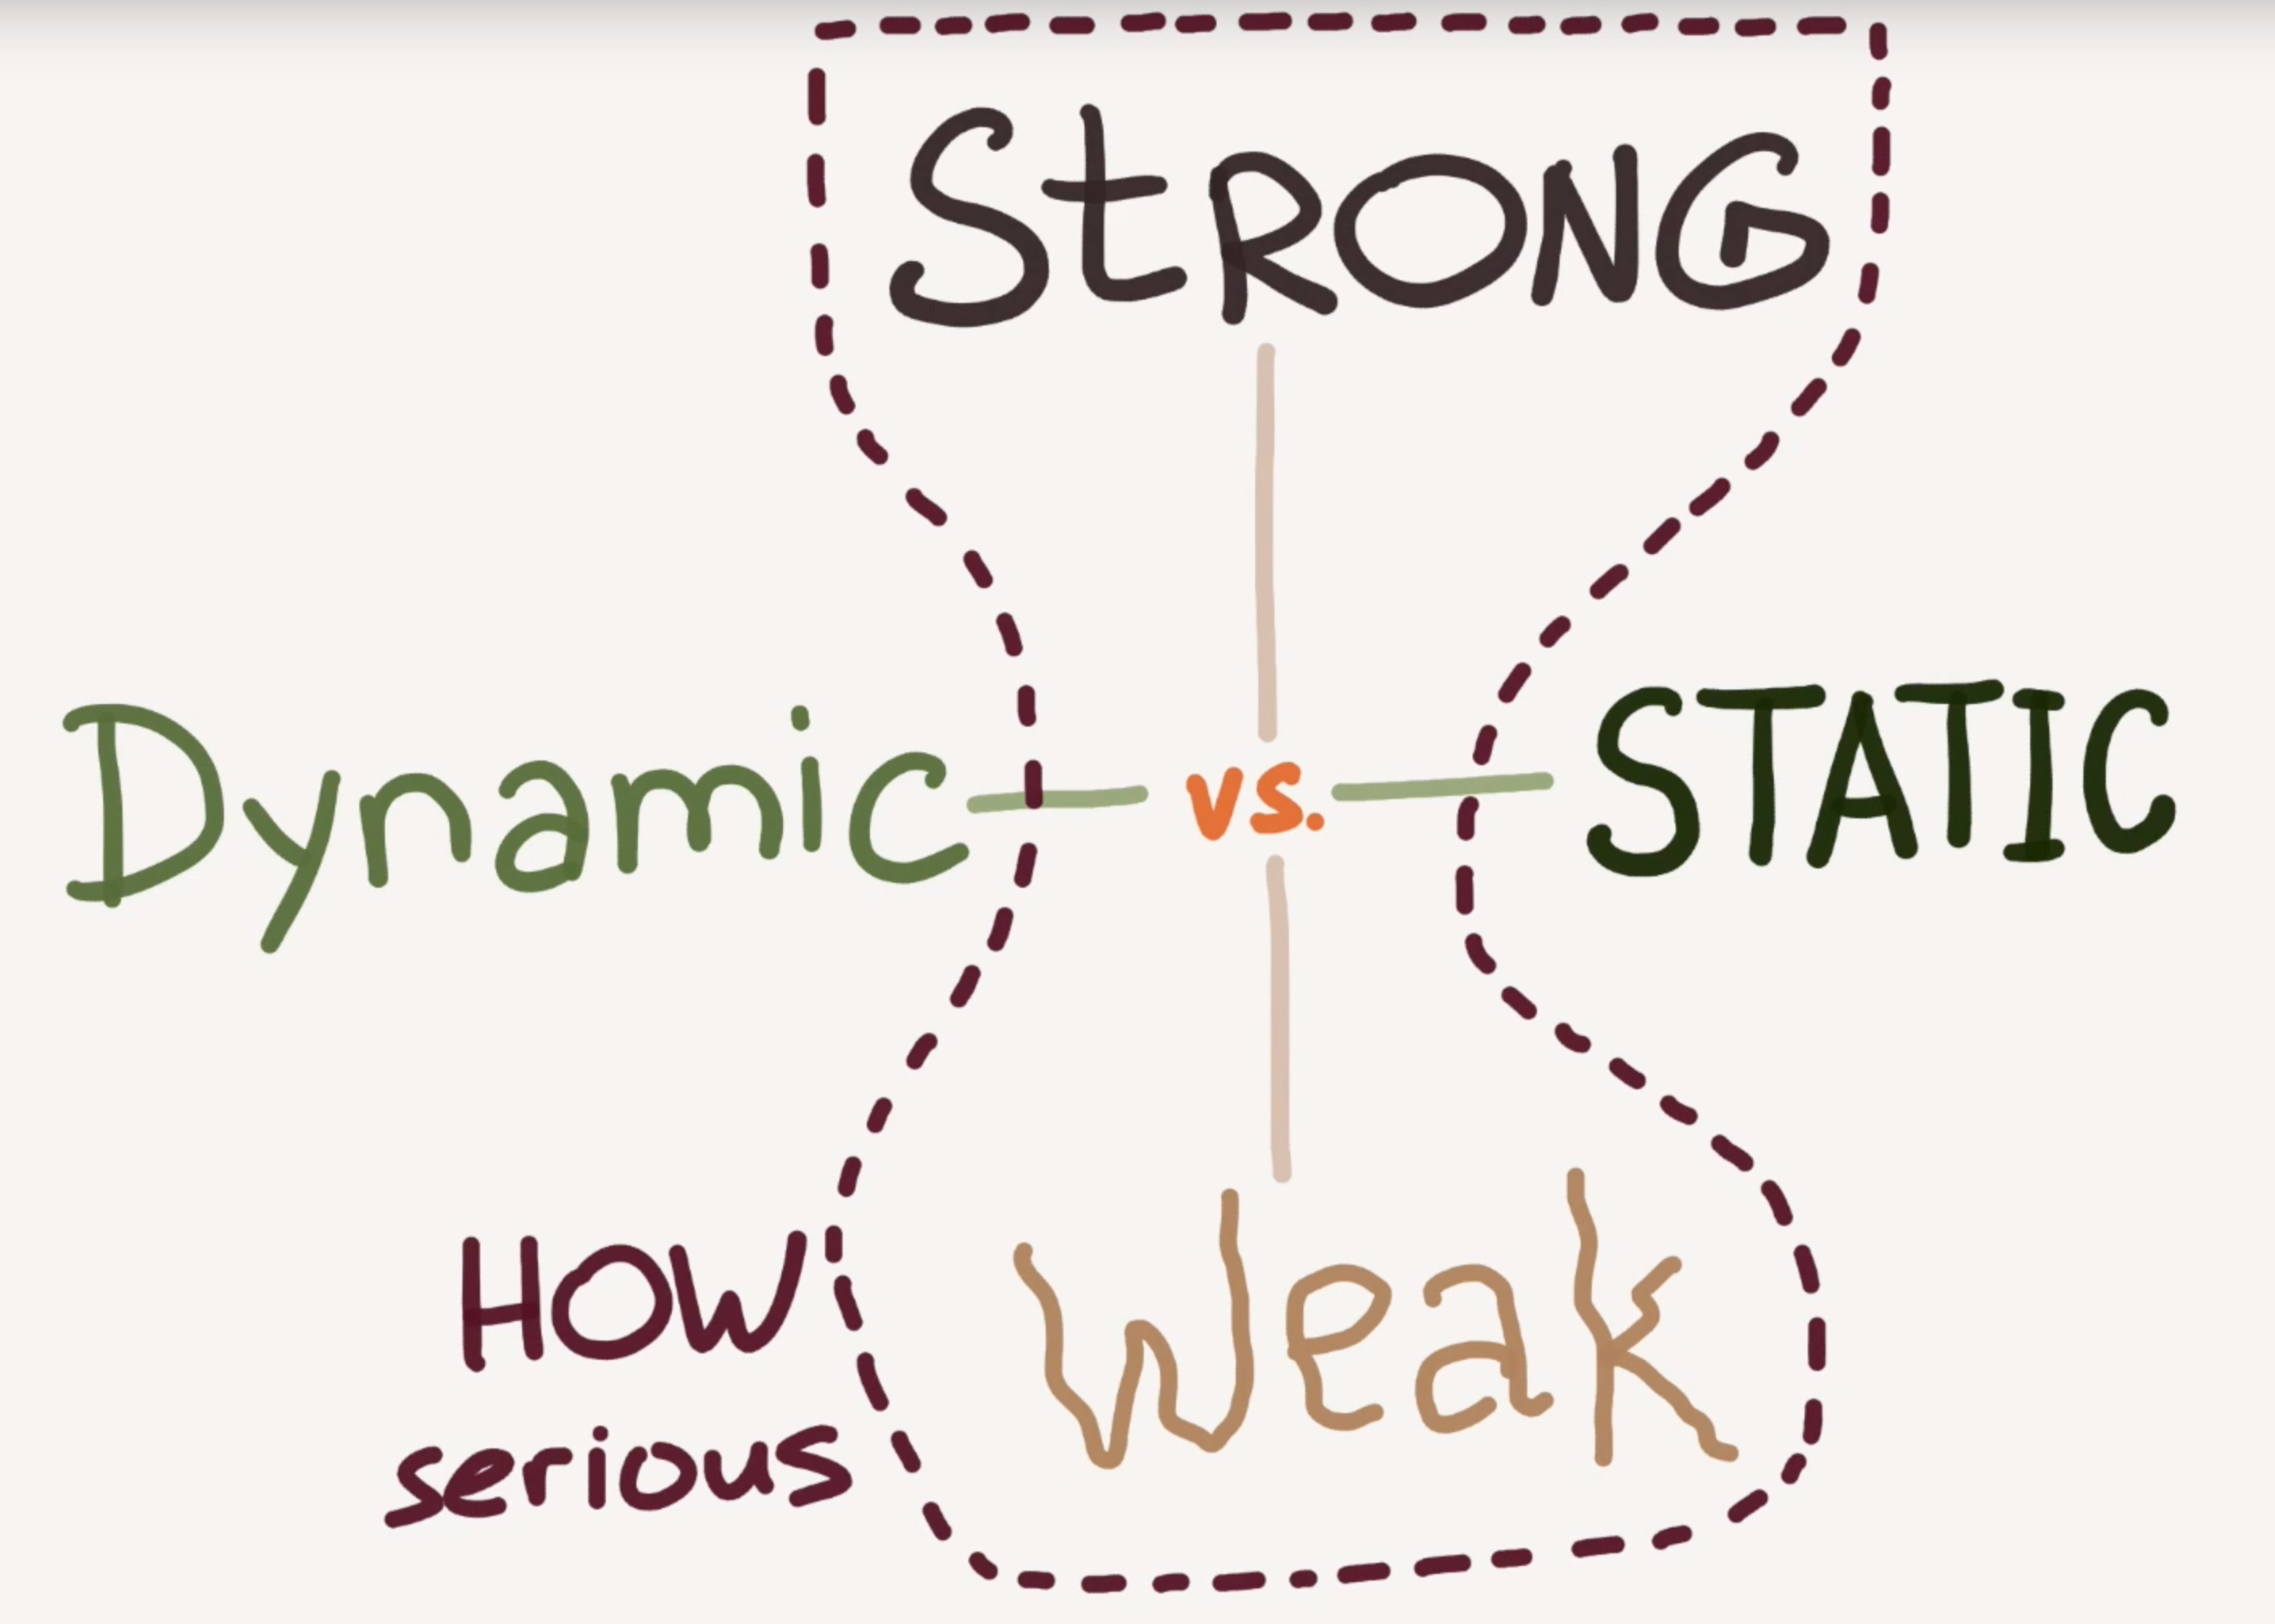 StRONG
Dynamic vs. STATIC
HOW
serious
Weak